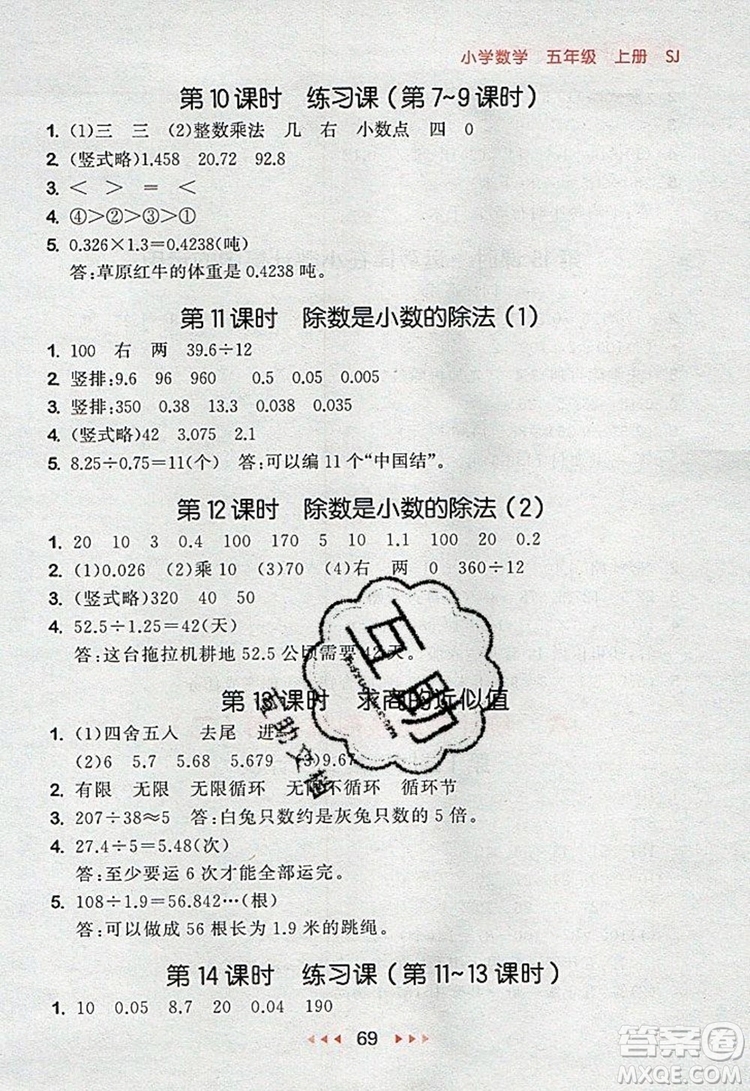 小学数学 五年级 上册 SJ
第10课时 练习课(第7~9课时)
1. (1)三 三 (2)整数乘法 几 右 小数点 四 0
2. (竖式略)1.458 20.72 92.8
3. < > = <
4. ④>②>③>①
5. 0.326×1.3=0.4238(吨)
答:草原红牛的体重是0.4238吨。
第11课时 除数是小数的除法(1)
1. 100 右 两 39.6÷12
2. 竖排:9.6 96 960 0.5 0.05 0.005
3. 竖排:350 0.38 13.3 0.038 0.035
4. (竖式略)42 3.075 2.1
5. 8.25÷0.75=11(个) 答:可以编11个“中国结”。
第12课时 除数是小数的除法(2)
1. 20 10 3 0.4 100 170 5 10 1.1 100 20 0.2
2. (1)0.026 (2)乘10 (3)70 (4)右 两 0 360÷12
3. (竖式略)320 40 50
4. 52.5÷1.25=42(天)
答:这台拖拉机耕地52.5公顷需要42天。
第13课时 求商的近似值
1. (1)四舍五人 去尾 进
(2)6 5.7 5.68 5.679 (3)9.67
2. 有限 无限 无限循环 无限不循环 循环节
3. 207÷38≈5 答:白兔只数约是灰兔只数的5倍。
4. 27.4÷5=5.48(次)
答:至少要运6次才能全部运完。
5. 108÷1.9=56.842…(根)
答:可以做成56根长为1.9米的跳绳。
第14课时 练习课(第11~13课时)
1. 10 0.05 8.7 20 0.04 190
69
互助
互助文档
答案圈
MXQE.COM